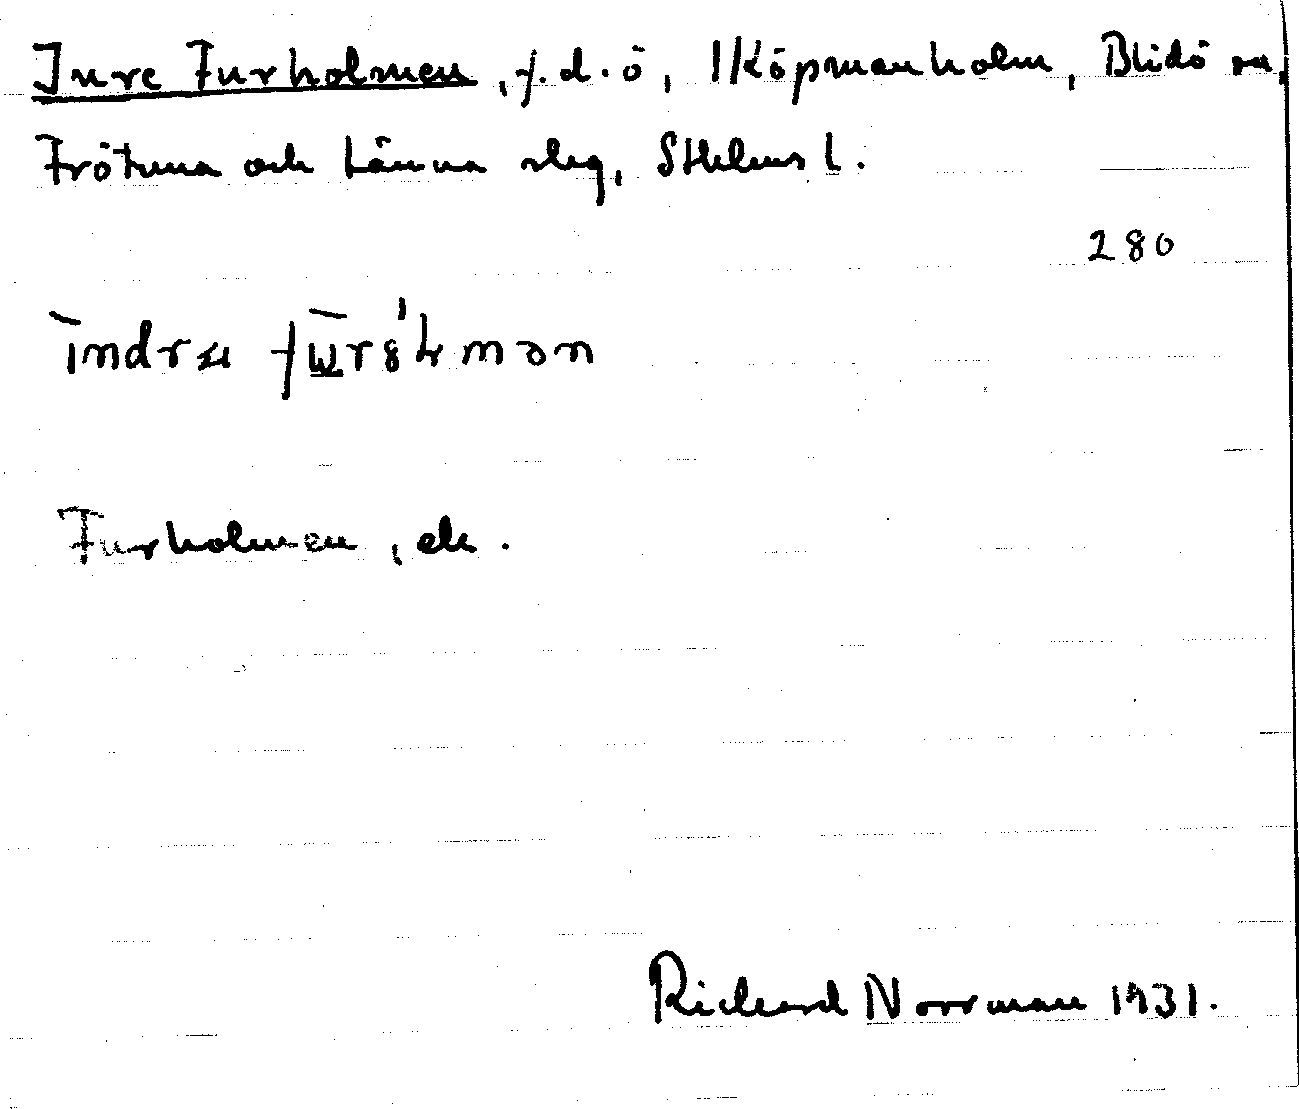 Inre Furholmen, f.d. ö, 1/Köpmanholm, Blidö sn,
Frötuna och Länna slg, Sthlms l.
280
Furholmen, ek.
Richard Norrman 1931.